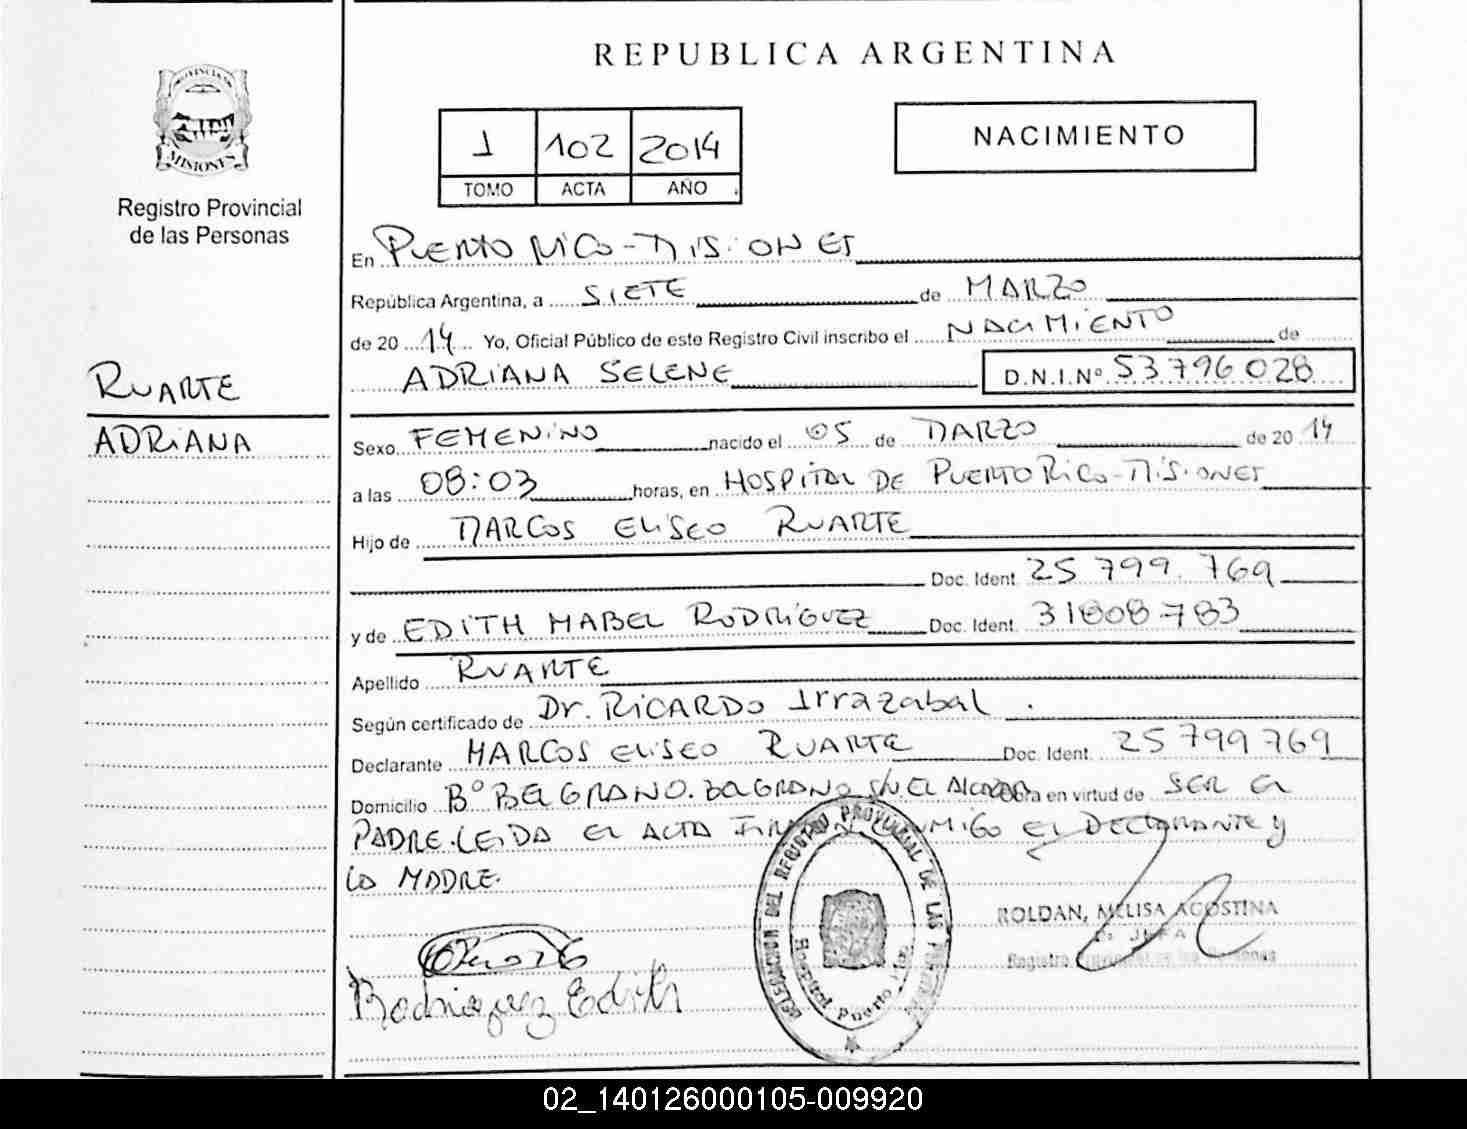 REPUBLICA ARGENTINA
PROVINCIA DE
MISIONES
Registro Provincial
de las Personas
1 102 2014
TOMO ACTA AÑO
NACIMIENTO
En PUERTO RICO - MISIONES
República Argentina, a SIETE de MARZO
de 2014 Yo, Oficial Público de este Registro Civil inscribo el NACIMIENTO de
ADRIANA SELENE D.N.I.Nº 53796028
RUARTE
ADRIANA
Sexo FEMENINO nacido el 05 de MARZO de 2014
a las 08:03 horas, en HOSPITAL DE PUERTO RICO - MISIONES
Hijo de MARCOS ELISEO RUARTE
Doc. Ident. 25 799. 769
y de EDITH MABEL RODRIGUEZ Doc. Ident. 31808783
Apellido RUARTE
Según certificado de Dr. RICARDO Irrazabal.
Declarante MARCOS ELISEO RUARTE Doc. Ident. 25 799 769
Domicilio Bº BELGRANO. BELGRANO S/N EL Alcazar Obra en virtud de SER EL
PADRE. LEIDA EL ACTA FIRMAN CONMIGO EL DECLARANTE y
LA MADRE.
DELEGACION DEL REGISTRO PROVINCIAL DE LAS PERSONAS
Hospital Puerto Rico
ROLDAN, MELISA AGOSTINA
JEFA
Registro Provincial de las Personas
Rodriguez Edith
02_140126000105-009920